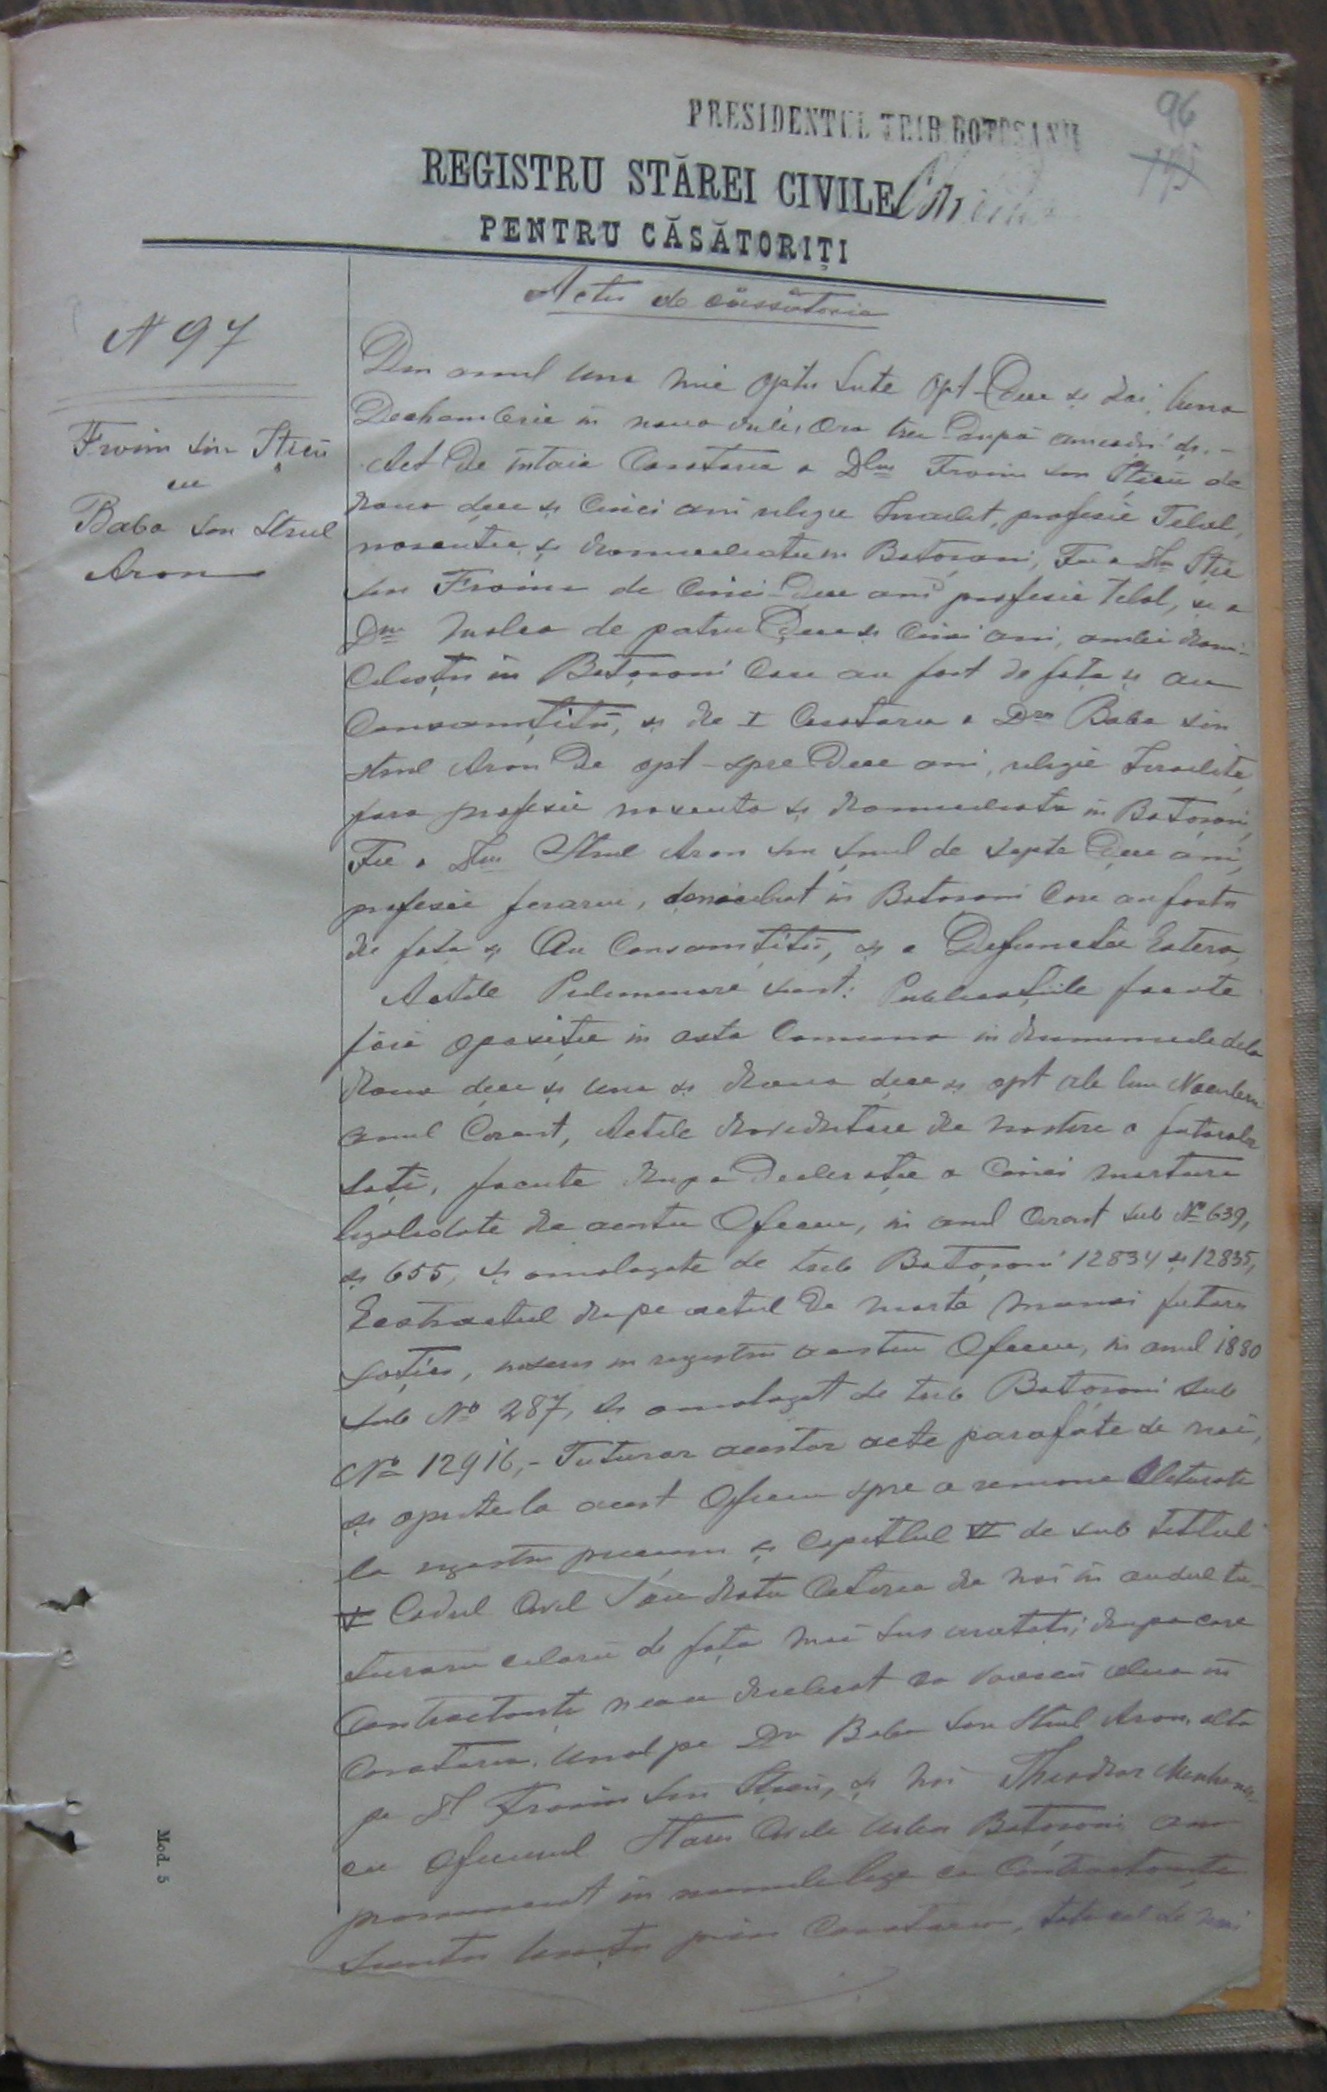 96
PRESIDENTUL TRIB. BOTOSANII
REGISTRU STĂREI CIVILE
PENTRU CĂSĂTORIȚI
Actu de căssătorie
N 97
Froim sin Ștrul
cu
Baba sin Strul
Aron
Din anul una mie optu sute opt-deci și doi, luna
Dechembrie in noua dile, ora trei după amiadi di. -
Act de intaia casatorie a Dlui Froim sin de
doua deci și cinci ani religie Israelit, profesie Telal,
nascutu și domiciliatu in Botosani, Fiu a Dlui
sin Froim de cinci-deci ani profesie Telal, și a
Dnei de patru deci și cinci ani, ambii domi-
ciliați in Botoșani care au fost de fața și au
consimțitu, și de I casatorie a Drei Baba sin
Strul Aron de opt-spre deci ani, religie Israelită,
fara profesie nascuta și domiciliata in Botosani,
Fie a Dlui Strul Aron sin de șapte deci ani,
profesie ferariu, domiciliat in Botosani care au fostu
de fața și au consimțitu, și a Defunctei Estera,
Actele Preliminare sunt: Publicațiile facute
fără opoziție in asta comuna in Duminicele dela
doua deci și una și doua deci și opt ale lun Noembrie
anul corent, Actele doveditore de nastere a fiitorilor
soți, facute dupa declerație a cinci marturi
legalisate de acestu Oficiu, in anul curent sub No 639,
și 655, și omologate de trib Botoșani 12834 și 12835,
Ecstractul dupe actul de morte mamei fiitorei
soției, inscris in registru acestui Oficiu, in anul 1880
sub No 287, și omologat de trib Botosani sub
No 12916,- Tuturor acestor acte parafate de noi,
și oprite la acest Oficiu spre a remane alaturate
la registru precum și capitlul VI de sub titlul
V Codul Civil s'au datu cetirea de noi in audul tu-
turoru celoru de față mai sus aratati; dupa care
Contractanți ne au declarat ca voiescu a lua in
casatorie, unul pe Dra Baba sin Strul Aron, alta
pe Dl Froim sin și noi Theodor
cu oficerul Starei Civile urbei Botoșani am
pronunciat in numele lege ca contractanți
suntu uniți prin casatorie, totu cel de noi
Mod. 5